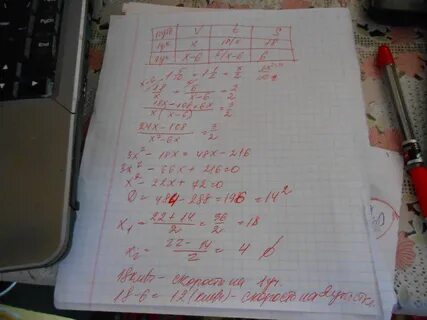 путь V t S
1уч x 18/x 18
2уч x-6 6/x-6 6
18/x + 6/x-6 = 3/2
18x-108+6x / x(x-6) = 3/2
24x-108 / x²-6x = 3/2
3x²-18x = 48x-216
3x²-66x+216=0
x²-22x+72=0
D = 484-288=196=14²
x₁ = 22+14 / 2 = 36/2 = 18
x₂ = 22-14 / 2 = 4
18км/ч - скорость на 1уч
18-6 = 12 (км/ч) - скорость на